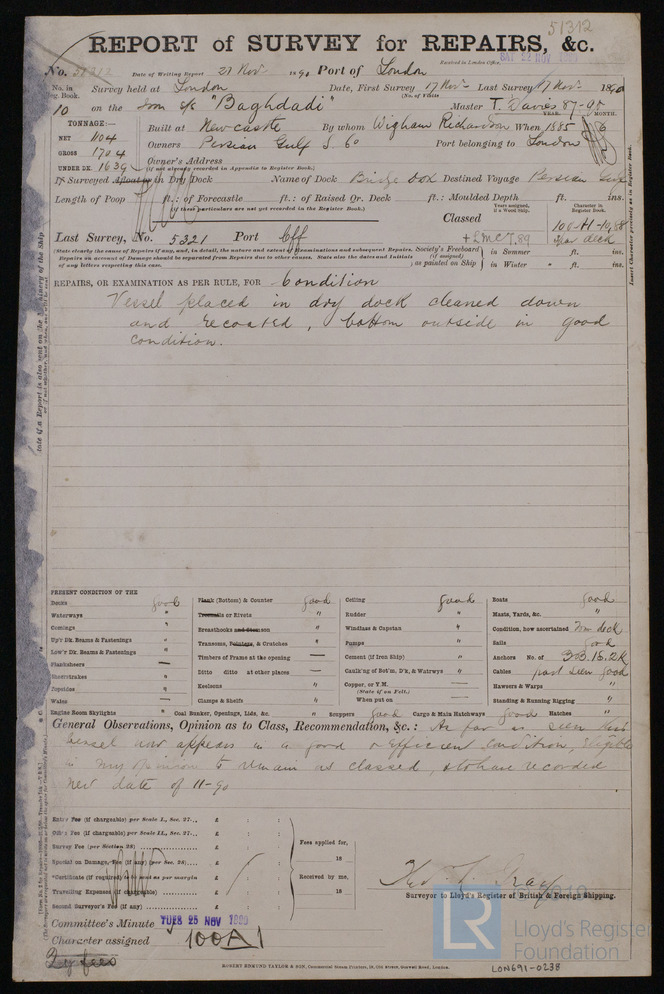 51312
REPORT of SURVEY for REPAIRS, &c.
Received in London Office, SAT 22 NOV 1890
No. 51312 Date of Writing Report 21 Nov 1890 Port of London
No. in Reg. Book. Survey held at London Date, First Survey 17 Nov Last Survey 17 Nov 1890
(No. of Visits
10 on the Iron s/s "Baghdadi" Master T. Davies 87-05
TONNAGE:— YEAR. MONTH.
NET 1104 Built at Newcastle By whom Wigham Richardson When 1885 6
GROSS 1704 Owners Persian Gulf S. Co Port belonging to London
UNDER DK. 1639 Owner's Address
(if not already recorded in Appendix to Register Book.)
If Surveyed Afloat or in Dry Dock Name of Dock Bridge Dock Destined Voyage Persian Gulf
Length of Poop ft.: of Forecastle ft.: of Raised Qr. Deck ft.: Moulded Depth ft. ins.
(if these particulars are not yet recorded in the Register Book.)
Years assigned, if a Wood Ship. Character in Register Book.
Classed 100 A1-10,88
Spar deck
+LMC 7.89
Last Survey, No. 5321 Port Cff
(State clearly the cause of Repairs if any, and, in detail, the nature and extent of Examinations and subsequent Repairs.
Repairs on account of Damage should be separated from Repairs due to other causes. State also the dates and initials
of any letters respecting this case.
Society's Freeboard (if assigned) as painted on Ship in Summer ft. ins.
in Winter " ft. ins.
REPAIRS, OR EXAMINATION AS PER RULE, FOR Condition
Vessel placed in dry dock cleaned down
and recoated, bottom outside in good
condition.
PRESENT CONDITION OF THE
Decks good
Waterways "
Comings "
Up'r Dk. Beams & Fastenings "
Low'r Dk. Beams & Fastenings "
Planksheers —
Sheerstrakes "
Topsides "
Wales —
Engine Room Skylights "
Plank (Bottom) & Counter good
Treenails or Rivets "
Breasthooks and Stemson "
Transoms, Pointers, & Crutches "
Timbers of Frame at the opening —
Ditto ditto at other places —
Keelsons "
Clamps & Shelfs —
Coal Bunker, Openings, Lids, &c. "
Ceiling good
Rudder "
Windlass & Capstan "
Pumps "
Cement (if Iron Ship) "
Caulk'ng of Bot'm. D'k, & Watrwys "
Copper, or Y.M. —
(State if on Felt.)
When put on —
Scuppers good Cargo & Main Hatchways good Hatches "
Boats good
Masts, Yards, &c. "
Condition, how ascertained fm deck
Sails good
Anchors No. of 3B.1S.2K
Cables part seen good
Hawsers & Warps "
Standing & Running Rigging "
General Observations, Opinion as to Class, Recommendation, &c.: As far as seen this
vessel now appears in a good & efficient condition, eligible
in my opinion to remain as classed, & to have recorded
new date of 11-90
Entry Fee (if chargeable) per Scale I., Sec. 27... £ : :
Office Fee (if chargeable) per Scale II., Sec. 27... £ : :
Survey Fee (per Section 28) £ : :
Special on Damage, Fee (if any) (per Sec. 28) £ : :
*Certificate (if required) as per margin £ : :
Travelling Expenses (if chargeable) £ : :
Second Surveyor's Fee (if any) £ : :
Fees applied for, 18
Received by me, 18
Surveyor to Lloyd's Register of British & Foreign Shipping.
Committee's Minute TUES 25 NOV 1890
Character assigned 100A1
ROBERT EDMUND TAYLER & SON, Commercial Steam Printers, 19, Old Street, Goswell Road, London.
© 2019
LR
Lloyd's Register
Foundation
LON691-0238